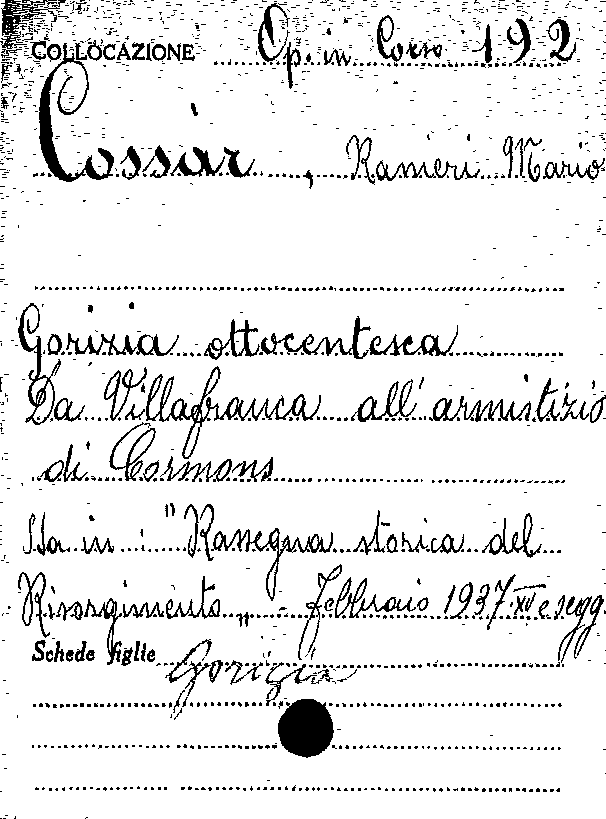 COLLOCAZIONE Op. in Corso 192
Cossàr, Ranieri Mario
Gorizia ottocentesca
Da Villafranca all'armistizio
di Cormons
Sta in: "Rassegna storica del
Risorgimento„ - febbraio 1937. XV e segg.
Schede figlie Gorizia